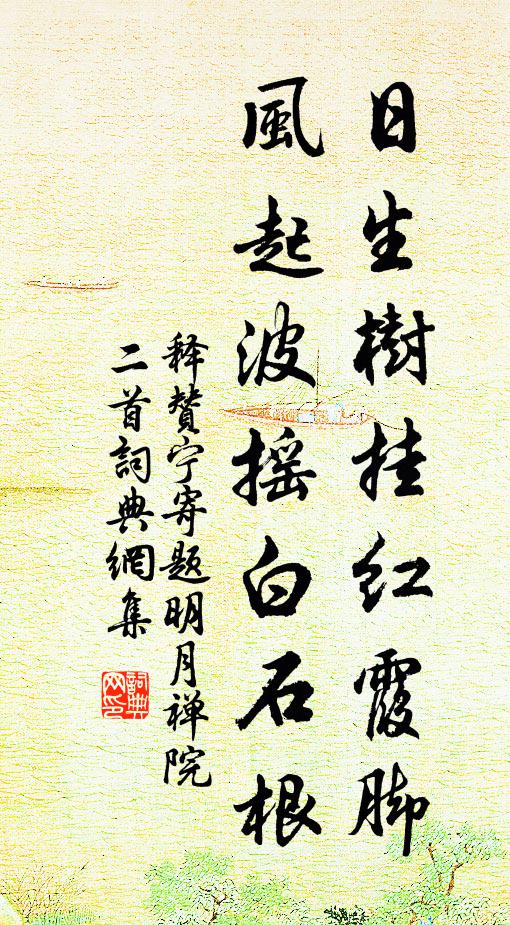 日生樹挂红霞脚
風起波摇白石根
释贊宁寄题明月禅院
二首詞典網集
詞典网印